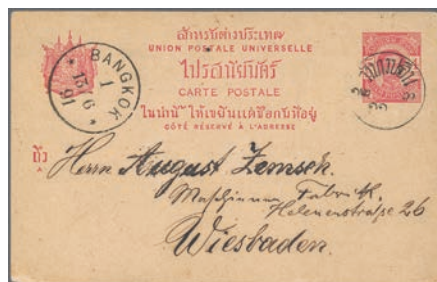 สหการต่างประเทศ
UNION POSTALE UNIVERSELLE
ไปรสนียบัตร
CARTE POSTALE
ในน่านี้ ให้เขียนแต่ชื่อกับที่อยู่
CÔTÉ RÉSERVÉ À L'ADRESSE
BANGKOK
1
13 6
91
Herrn August Zemsch.
Maschinen Fabrik.
Helenenstraße 26
Wiesbaden.